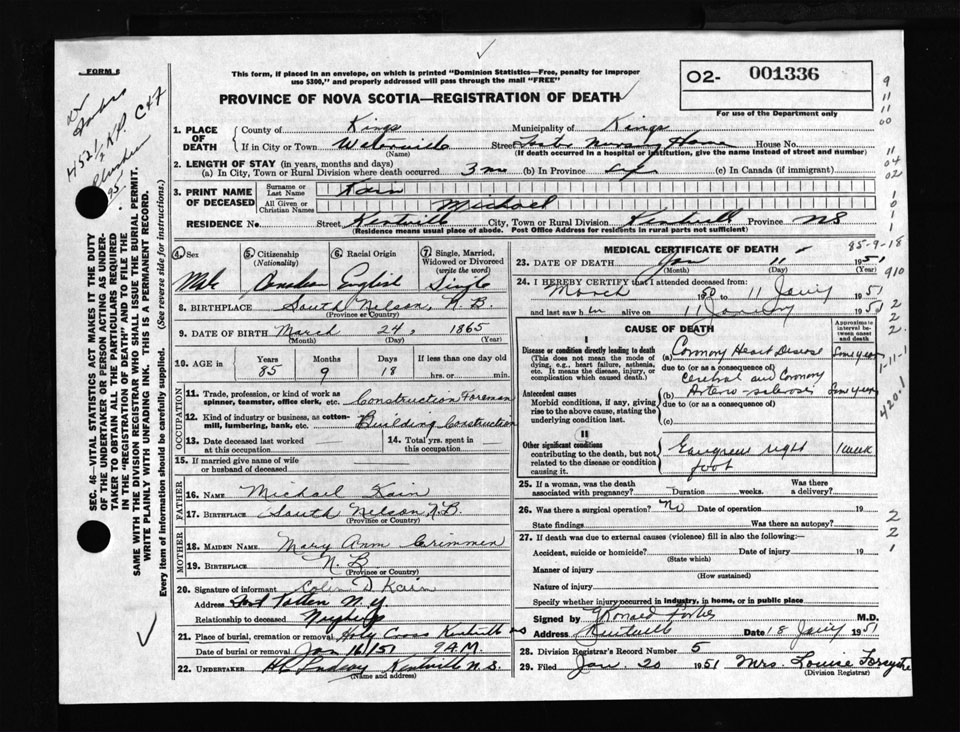 FORM 6
This form, if placed in an envelope, on which is printed "Dominion Statistics—Free, penalty for improper
use $300," and properly addressed will pass through the mail "FREE"
PROVINCE OF NOVA SCOTIA—REGISTRATION OF DEATH
O2- 001336
For use of the Department only
1. PLACE OF DEATH
County of Kings Municipality of Kings
If in City or Town Street Nursing Home House No.
(Name) (If death occurred in a hospital or institution, give the name instead of street and number)
2. LENGTH OF STAY (in years, months and days)
(a) In City, Town or Rural Division where death occurred 3 mo (b) In Province Life (c) In Canada (if immigrant)
3. PRINT NAME OF DECEASED
Surname or Last Name Kain
All Given or Christian Names Michael
RESIDENCE No. Street Kentville City, Town or Rural Division Kentville Province NS
(Residence means usual place of abode. Post Office Address for residents in rural parts not sufficient)
4. Sex Male
5. Citizenship (Nationality) Canadian
6. Racial Origin English
7. Single, Married, Widowed or Divorced (write the word) Single
8. BIRTHPLACE South Nelson, N.B.
(Province or Country)
9. DATE OF BIRTH March 24, 1865
(Month) (Day) (Year)
10. AGE in Years Months Days If less than one day old
85 9 18 hrs. or min.
OCCUPATION
11. Trade, profession, or kind of work as spinner, teamster, office clerk, etc. Construction Foreman
12. Kind of industry or business, as cotton-mill, lumbering, bank, etc. Building Construction
13. Date deceased last worked at this occupation
14. Total yrs. spent in this occupation
15. If married give name of wife or husband of deceased
FATHER
16. NAME Michael Kain
17. BIRTHPLACE South Nelson, N.B.
(Province or Country)
MOTHER
18. MAIDEN NAME Mary Ann Crimmen
19. BIRTHPLACE N.B
(Province or Country)
20. Signature of informant Colin D Kain
Address Fort Totten N.Y.
Relationship to deceased Nephew
21. Place of burial, cremation or removal Holy Cross Kentville NS
Date of burial or removal Jan 16/51 9 A.M.
22. UNDERTAKER Kentville N.S.
(Name and address)
MEDICAL CERTIFICATE OF DEATH
85-9-18
23. DATE OF DEATH Jan 11 1951
(Month) (Day) (Year)
24. I HEREBY CERTIFY that I attended deceased from:
March 1950 to 11 Jan'y 1951
and last saw him alive on 11 January 1951
CAUSE OF DEATH
Approximate interval between onset and death
I
Disease or condition directly leading to death
(This does not mean the mode of dying, e.g., heart failure, asthenia, etc. It means the disease, injury, or complication which caused death.)
(a) Coronary Heart Disease Some years
due to (or as a consequence of)
Antecedent causes
Morbid conditions, if any, giving rise to the above cause, stating the underlying condition last.
(b) Cerebral and Coronary Arterio-sclerosis Some years
due to (or as a consequence of)
(c)
II
Other significant conditions
contributing to the death, but not related to the disease or condition causing it.
Gangrene right foot 1 week
25. If a woman, was the death associated with pregnancy? Duration weeks. Was there a delivery?
26. Was there a surgical operation? No Date of operation 19
State findings Was there an autopsy?
27. If death was due to external causes (violence) fill in also the following:—
Accident, suicide or homicide? Date of injury 19
(State which)
Manner of injury
(How sustained)
Nature of injury
Specify whether injury occurred in industry, in home, or in public place
Signed by Ronald Forbes M.D.
Address Kentville Date 18 Jan'y 1951
28. Division Registrar's Record Number 5
29. Filed Jan. 20 1951 Mrs. Louise Forsythe
(Division Registrar)
SEC. 46—VITAL STATISTICS ACT MAKES IT THE DUTY
OF THE UNDERTAKER OR PERSON ACTING AS UNDER-
TAKER TO OBTAIN ALL THE PARTICULARS REQUIRED
IN THE "REGISTRATION OF DEATH" AND TO FILE THE
SAME WITH THE DIVISION REGISTRAR WHO SHALL ISSUE THE BURIAL PERMIT.
WRITE PLAINLY WITH UNFADING INK. THIS IS A PERMANENT RECORD.
Every item of information should be carefully supplied. (See reverse side for instructions.)
9
11
11
00
11
04
02
1
0
1
1
910
2
2
2
1-11-1
420.1
2
2
1